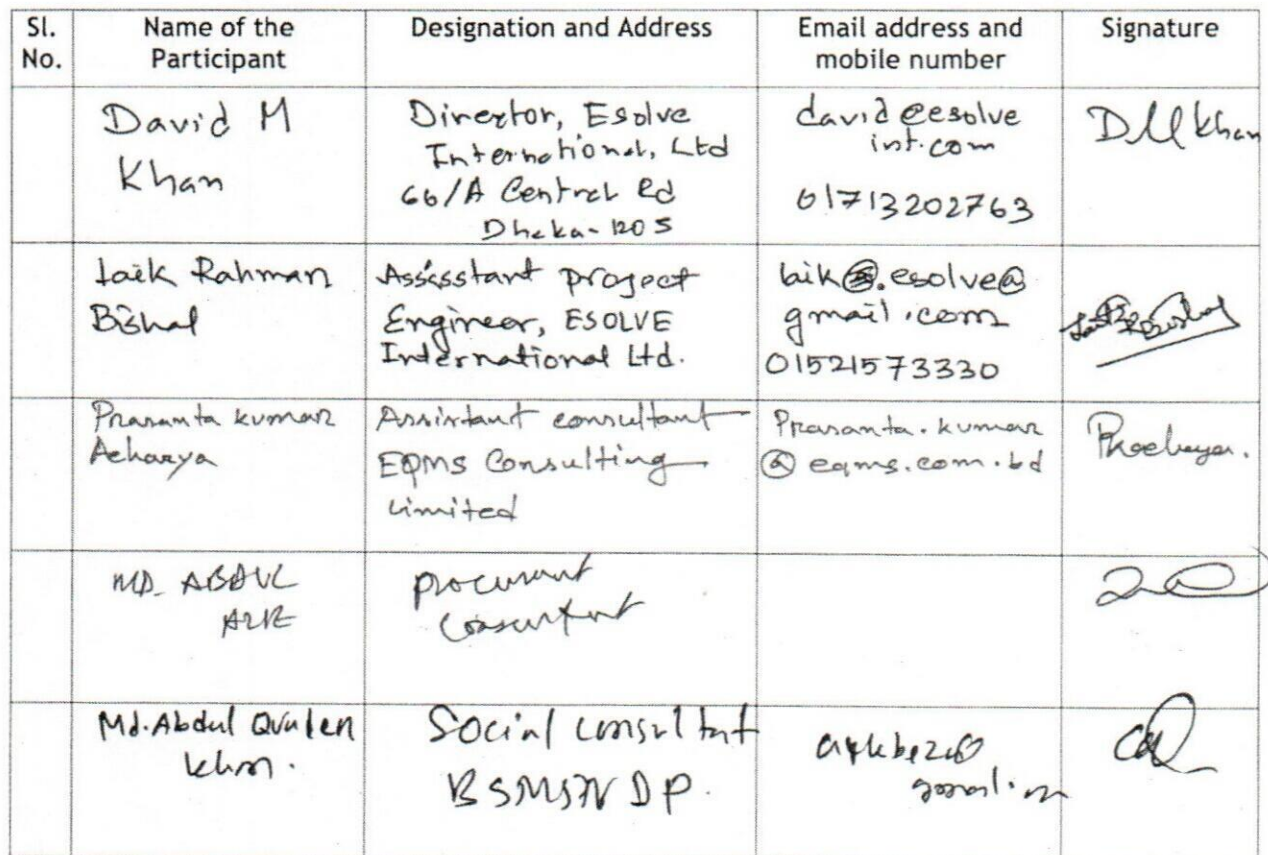 Sl. No.
Name of the Participant
Designation and Address
Email address and mobile number
Signature
David M
Khan
Director, Esolve
International, Ltd
66/A Central Rd
Dhaka-1205
david@esolve
int.com
01713202763
DM Khan
Laik Rahman
Bishal
Assisstant project
Engineer, ESOLVE
International Ltd.
laik.esolve@
gmail.com
01521573330
Prasanta kumar
Acharya
Assistant consultant
EQMS Consulting
Limited
Prasanta.kumar
@eqms.com.bd
MD. ABDUL
procurant
Md. Abdul
Khan.
Social consultant